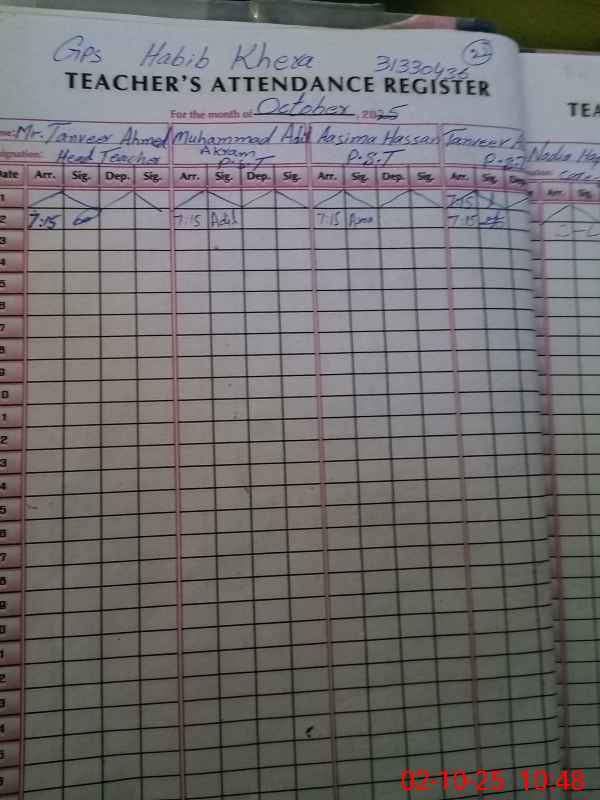 22
GPS Habib Khera 31330436
TEACHER'S ATTENDANCE REGISTER
TEA
For the month of October, 2025
Mr. Tanveer Ahmed Muhammad Adil Akram Aasima Hassan Tanveer A
Designation: Head Teacher P.S.T P.S.T P.S.T Nadia
Date Arr. Sig. Dep. Sig. Arr. Sig. Dep. Sig. Arr. Sig. Dep. Sig. Arr. Sig. Dep. Arr. Sig.
1 7:15
2 7:15 7:15 Adil 7:15 7:15
3
4
5
6
7
8
9
0
1
2
3
4
5
6
7
8
9
0
1
2
3
4
5
6
02-10-25 10:48